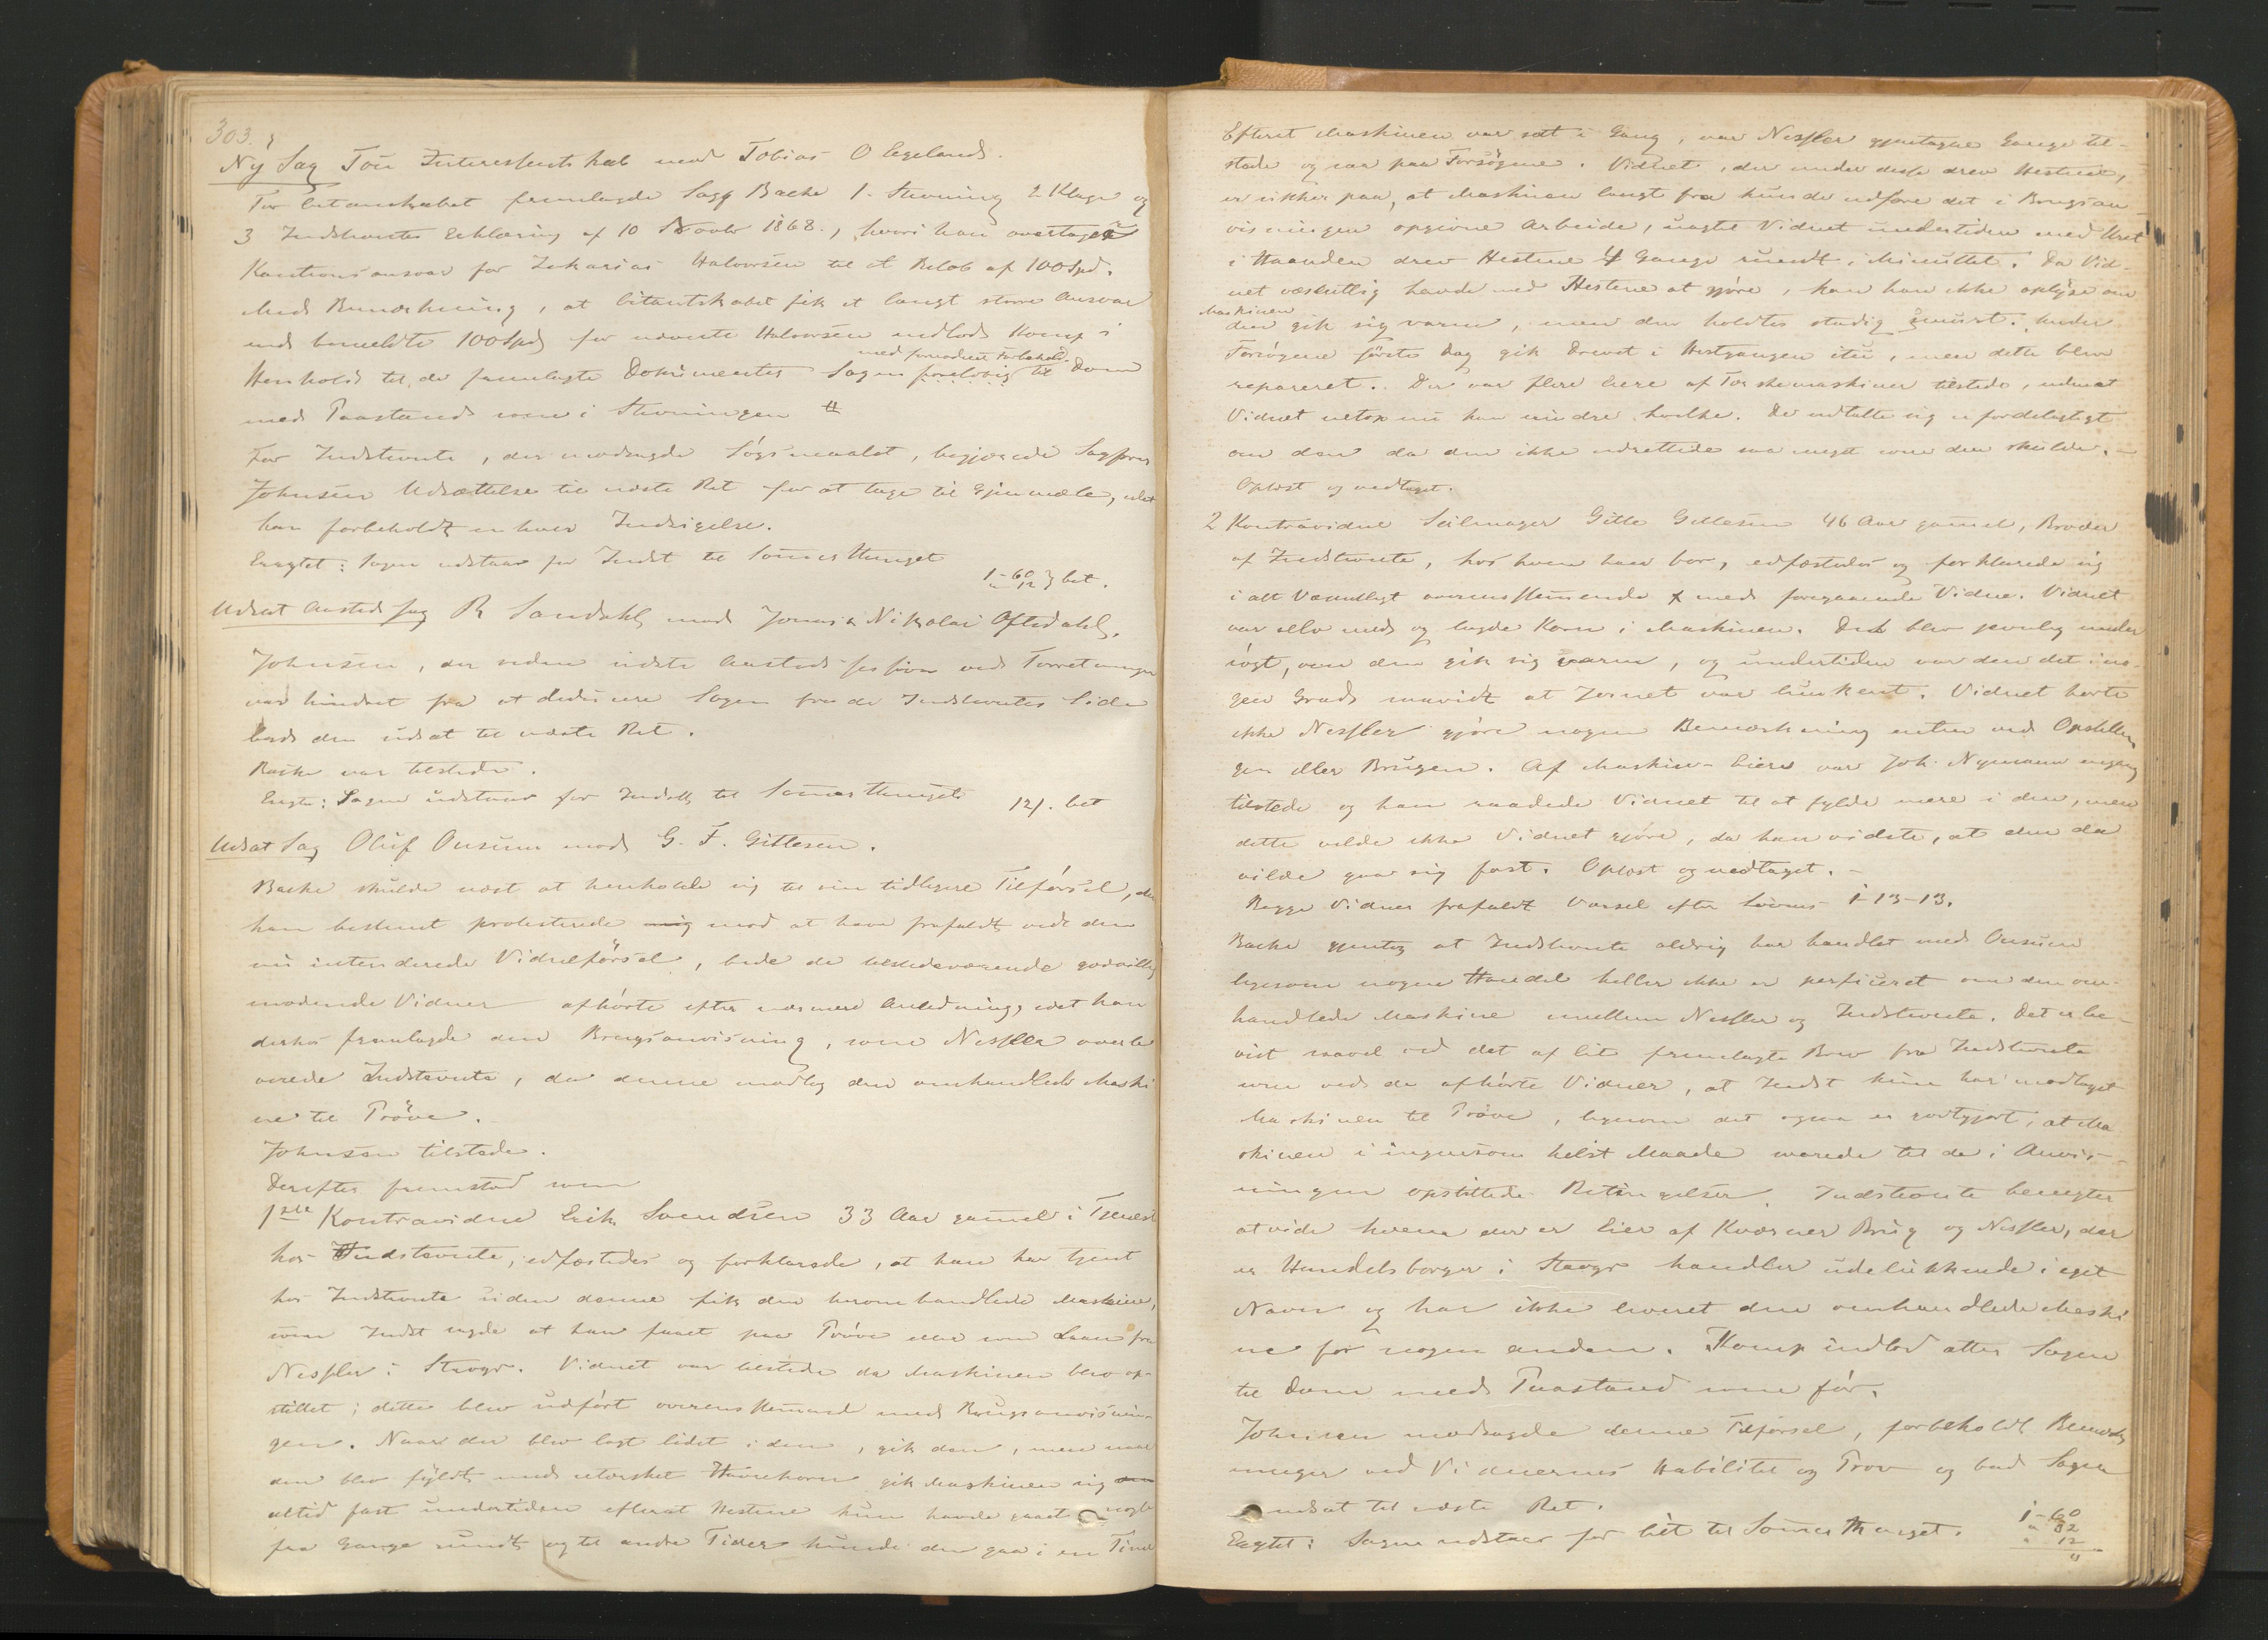 303.
Ny Sag Tou Interessentskab mod Tobias O Egelands.
For Citantskabet fremlagde Sagf Bache 1. Stevning 2 Klage og
3 Indstevntes Erklæring af 10 Novbr 1868., hvori han overtager
Kautionsansvar for Zakarias Halvorsen til et Beløb af 100 Spd.
Med Bemærkning, at Citantskabet fik et langt større Ansvar
end bemeldte 100 Spd for nævnte Halvorsen indlod Komp i
Henhold til de fremlagte Dokumenter Sagen foreløbig med fornødent Forbehold til Dom
med Paastand som i Stevningen
For Indstevnte, der modsagde Søgsmaalet, begjærede Sagfører
Johnsen Udsættelse til næste Ret for at tage til Gjenmæle, idet
han forbeholdt enhver Indsigelse.
Eragtet: Sagen udstaar for Indst til Sommerthinget
1-60
" 12 } bet.
Udsat Aasted Sag R Sandahl mod Jonas & Nikolai Oftedahl.
Johnsen, der siden sidste Aasteds session ved Forretninger
var hindret fra at deducere Sagen fra de Indstevntes Side
bad den udsat til næste Ret.
Bache var tilstede.
Eragtet: Sagen udstaar for Indstt til Sommerthinget
12/. bet
Udsat Sag Oluf Onsum mod G. F. Gittesen.
Bache skulde næst at henholde sig til sin tidligere Tilførsel, der
han bestemt protesterede mod at have frafaldt ved den
nu intenderede Vidneførsel, bede de tilstedeværende godvillig
mødende Vidner afhørte efter nærmere Anledning, idet han
derhos fremlagde den Brugsanvisning, som Nessler overle
verede Indstevnte, da denne modtog den omhandlede Maski
ne til Prøve.
Johnsen tilstede.
Derefter fremstod som
1ste Kontravidne Erik Svendsen 33 Aar gammel i Tjeneste
hos Indstevnte, edfæstedes og forklarede, at han har tjent
hos Indstevnte siden denne fik den herom handlede Maskine,
som Indst sagde at have faaet paa Prøve eller som Laan fra
Nessler i Stavgr. Vidnet var tilstede da Maskinen blev op-
stillet; dette blev udført overensstemmende med Brugsanvisnin-
gen. Naar der blev lagt lidet i den, gik den, men naar
den blev fyldt med utærsket Havrekorn gik Maskinen sig
altid fast undertiden efterat Hestene kun havde gaaet nogle
faa Gange rundt og til andre Tider kunde den gaa i en Time
Efterat Maskinen var sat i Gang, var Nessler gjentagne Gange til-
stede og saa paa Forsøgene. Vidnet, der under disse drev Hestene,
er sikker paa, at Maskinen langt fra kunde udføre det i Brugsan-
visningen opgivne Arbeide, uagtet Vidnet undertiden med Uret
i Haanden drev Hestene 4 Gange rundt i Minuttet. Da Vid-
net væsentlig havde med Hestene at gjøre, kan han ikke oplyse om
Maskinen
den gik sig varm, men den holdtes stadig smurt. Under
Forsøgene første Dag gik Drevet i Hestgangen itu, men dette blev
repareret. Der var flere Eiere af Tærskemaskiner tilstede, uden at
Vidnet netop nu kan mindre hvilke. De udtalte sig ufordelagtigt
om den da den ikke udrettede saa meget som den skulde.
Oplæst og vedtaget.
2 Kontravidne Seilmager Gitle Gittesen 46 Aar gammel, Broder
af Indstevnte, hos hvem han bor, edfæstedes og forklarede sig
i alt Væsentligt overensstemmende med foregaaende Vidne. Vidnet
var selv med og lagde Korn i Maskinen. Det blev jevnlig under
søgt, om den gik sig varm, og undertiden var den det i no-
gen Grad saavidt at Jernet var lunkent. Vidnet hørte
ikke Nessler gjøre nogen Bemærkning enten ved Opstillin
gen eller Brugen. Af Maskin-Eiere var Joh. Nymann engang
tilstede og han raadede Vidnet til at fylde mere i den, men
dette vilde ikke Vidnet gjøre, da han vidste, at den da
vilde gaa sig fast. Oplæst og vedtaget.-
Begge Vidner frafaldt Varsel efter Lovens 1-13-13.
Bache gjentog at Indstevnte aldrig har handlet med Onsum
ligesom nogen Handel heller ikke er perficeret om den om-
handlede Maskine mellem Nessler og Indstevnte. Det er be-
vist saavel ved det af Cit fremlagte Brev fra Indstevnte
som ved de afhørte Vidner, at Indst kun har modtaget
Maskinen til Prøve, ligesom det ogsaa er godtgjort, at Ma
skinen i ingensomhelst Maade svarede til de i Anvis-
ningen opstillede Betingelser. Indstevnte benegter
at vide hvem der er Eier af Kværner Brug og Nessler, der
er Handelsborger i Stavgr handler udelukkende i eget
Navn og har ikke leveret den omhandlede Maski
ne for nogen anden. Komp indlod atter Sagen
til Dom med Paastand som før.
Johnsen modsagde denne Tilførsel, forbeholdt Bemærk
ninger ved Vidnernes Habilitet og Prov og bad Sagen
udsat til næste Ret.
Eragtet: Sagen udstaar for Cit til Sommerthinget.
1-60
" 32
" 12